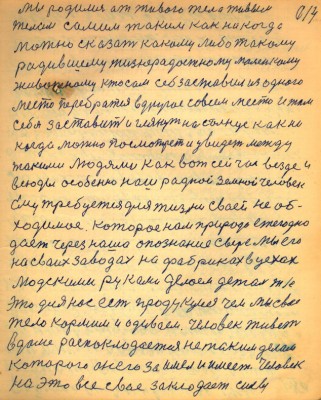 0/4
Мы родимся от живого тела живым
телом самим таким как никогда
можно сказать какому либо такому
родившему жизнерадостному маленькому
животному кто сам себ заставил из одного
место перебратя в другое совсем место и там
себя заставит и глянут на солнце как ни
когда можно посмотрет и увидет между
такими людями как вот сейчас везде и
всюду особенно наш радной земной человек
ему требуется для жизни своей не об-
ходимое, которое нам природа ежегодно
дает через нашо опознание сыре мы его
на своих заводах на фабриках в цехах
людскими руками делоем детали
это для нос ест продукция чем мы свое
тело кормим и одиваем, Человек живет
в доме распологдается не таким делом
которого он его заимел и имеет Человек
на это все свое закладает силу